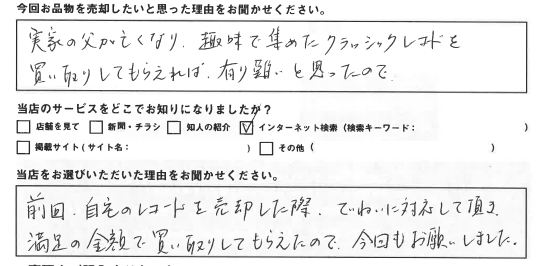 今回お品物を売却したいと思った理由をお聞かせください。
実家の父が亡くなり、趣味で集めたクラッシックレコードを
買い取りしてもらえれば、有り難いと思ったので、
当店のサービスをどこでお知りになりましたか?
□ 店舗を見て □ 新聞・チラシ □ 知人の紹介 ☑ インターネット検索(検索キーワード: )
□ 掲載サイト(サイト名: ) □ その他( )
当店をお選びいただいた理由をお聞かせください。
前回、自宅のレコードを売却した際、ていねいに対応して頂き、
満足の金額で買い取りしてもらえたので、今回もお願いしました。